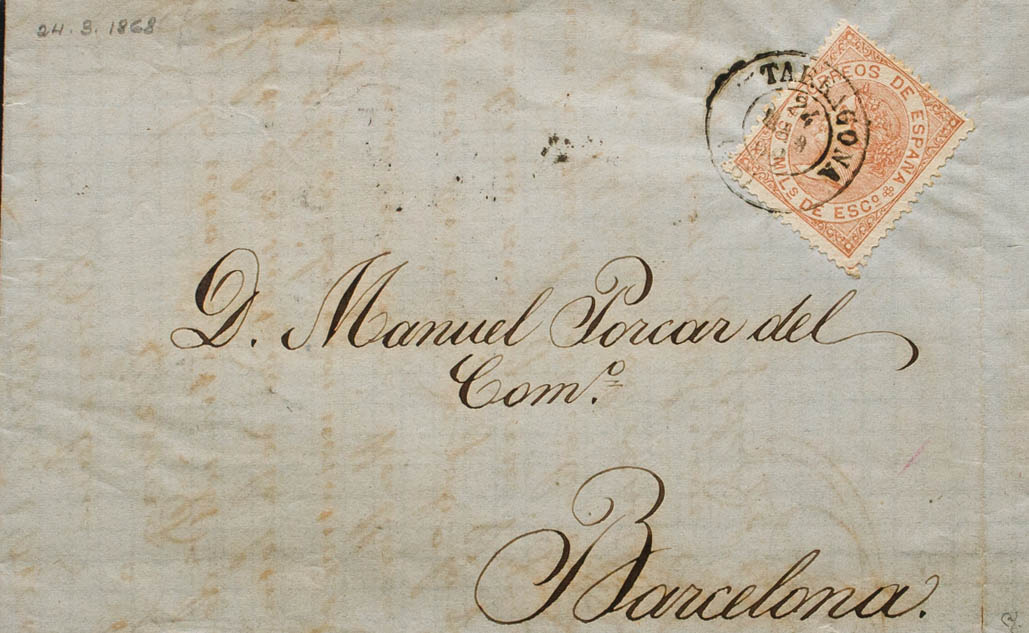 24. 3. 1868
TARRAGONA
CORREOS DE ESPAÑA
MILS DE ESCº
D. Manuel Porcar del
Com.º
Barcelona.